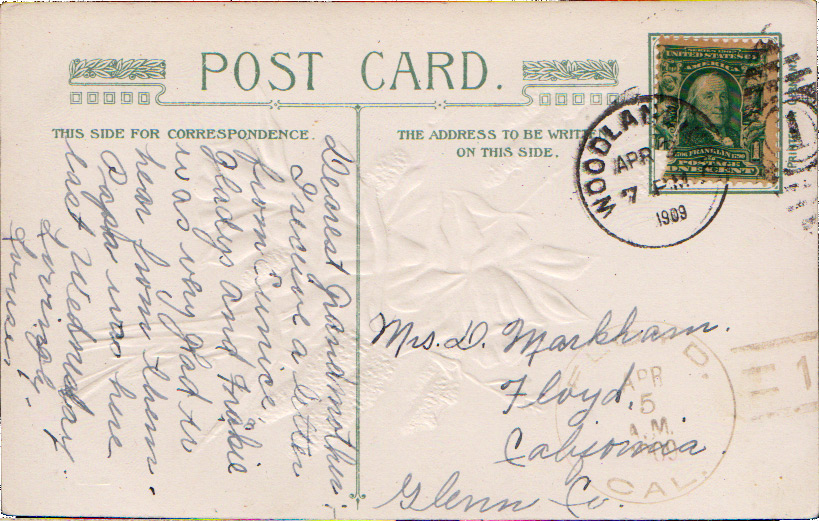 POST CARD.
THIS SIDE FOR CORRESPONDENCE.
THE ADDRESS TO BE WRITTEN
ON THIS SIDE.
Dearest Grandmother:
I receive a letter
from Eunice
Gladys and Frakie
was very glad to
hear from them.
Papa was here
last Wednesday.
Lovingly
Louise.
Mrs. D. Markham.
Floyd.
California.
Glenn Co.
WOODLAND
APR
7 PM
1909
1
UNITED STATES OF
AMERICA
FRANKLIN
POSTAGE
ONE CENT
APR
5
A.M.
CAL.
1